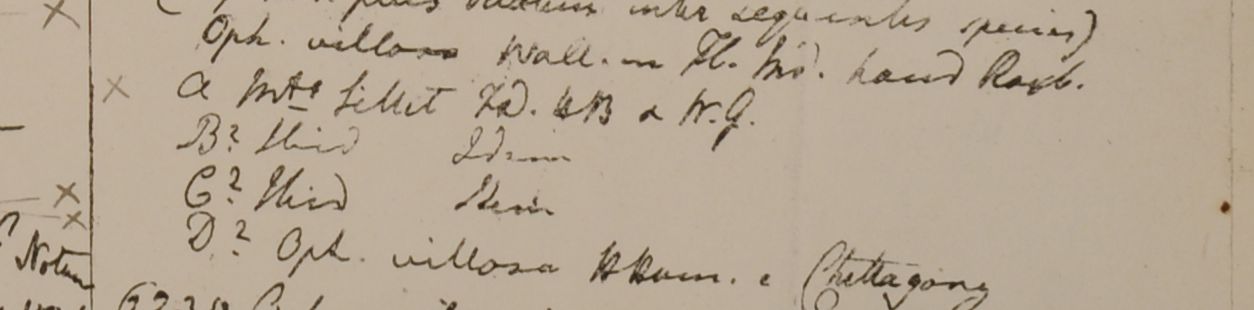 plures inter sequentes species)
Oph. villosa Wall. in Fl. Ind. haud Roxb.
a Mts Sillet FD. HB & W.G.
B? Ibid Idem
C? Ibid Item
D? Oph. villosa HHam. e Chittagong
Notum